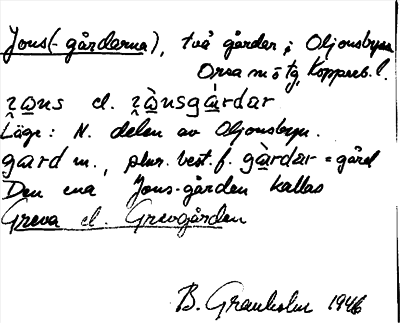 Jons(-gårdarna), två gårdar i Oljonsbyn
Orsa sn o tg, Kopparb. l.
ɀo̲ns el. ɀò̲nsgà̲rdar
Läge: N. delen av Oljonsbyn.
gard m., plur. best. f. gà̲rdar = gård
Den ena Jons-gården kallas
Greva el. Grevgården
B. Granholm 1946